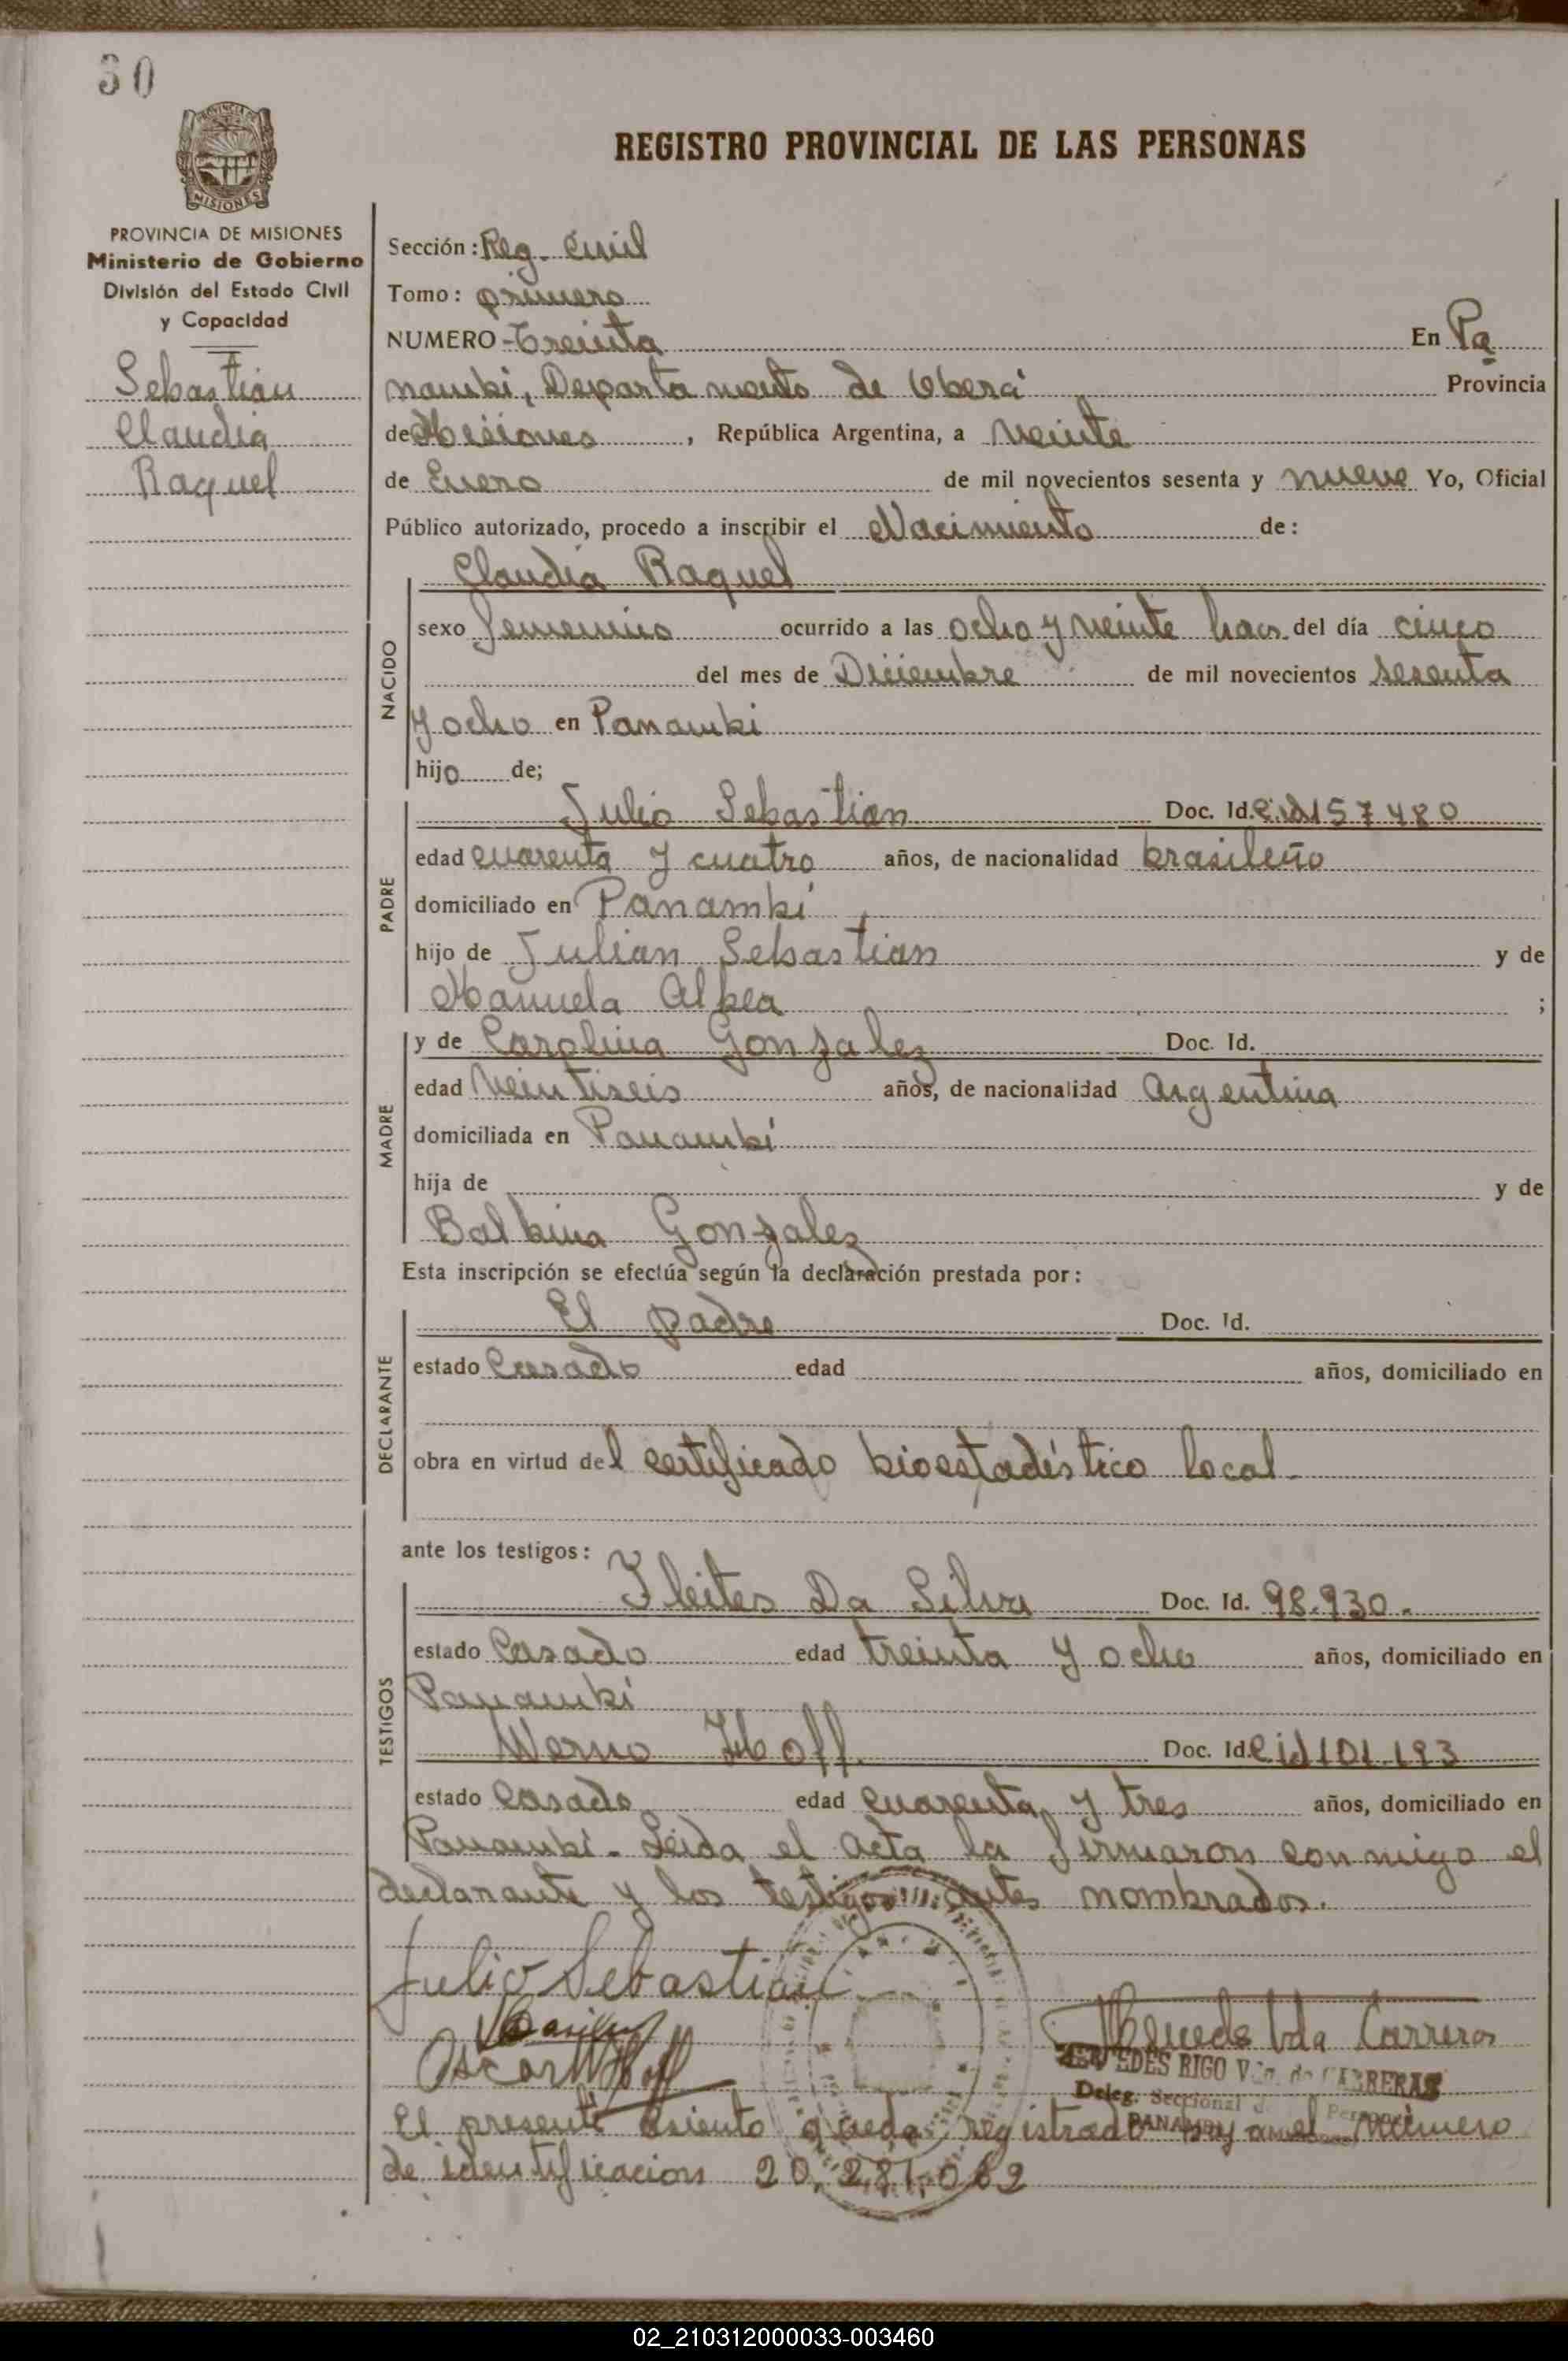 30
PROVINCIA DE
MISIONES
REGISTRO PROVINCIAL DE LAS PERSONAS
PROVINCIA DE MISIONES
Ministerio de Gobierno
División del Estado Civil
y Capacidad
Sebastian
Claudia
Raquel
Sección: Reg. Civil
Tomo: primero
NUMERO - Treinta En Pa
nambi, Departamento de Oberá Provincia
de Misiones, República Argentina, a veinte
de Enero de mil novecientos sesenta y nueve Yo, Oficial
Público autorizado, procedo a inscribir el Nacimiento de:
NACIDO
Claudia Raquel
sexo femenino ocurrido a las ocho y veinte hs. del día cinco
del mes de Diciembre de mil novecientos sesenta
y ocho en Panambi
hijo de;
PADRE
Julio Sebastian Doc. Id. C.id 157480
edad cuarenta y cuatro años, de nacionalidad brasileño
domiciliado en Panambí
hijo de Julian Sebastian y de
Manuela Albea ;
MADRE
y de Carolina Gonzalez Doc. Id.
edad veintiseis años, de nacionalidad Argentina
domiciliada en Panambí
hija de y de
Balbina Gonzalez
Esta inscripción se efectúa según la declaración prestada por:
DECLARANTE
El padre Doc. Id.
estado Casado edad años, domiciliado en
obra en virtud del certificado bioestadístico local
ante los testigos:
TESTIGOS
Fleites Da Silva Doc. Id. 98.930.
estado Casado edad treinta y ocho años, domiciliado en
Panambí
Werno Hoff Doc. Id. C id 101.193
estado Casado edad cuarenta y tres años, domiciliado en
Panambí. Leida el acta la firmaron conmigo el
declarante y los testigos antes nombrados.
Julio Sebastian
Oscar W Hoff
Vda Carreras
EDES RIGO Vda. de CARRERAS
Deleg. Seccional
PANAMBI
El presente asiento queda registrado hoy en el número
de identificacion 20.281.062
02_210312000033-003460